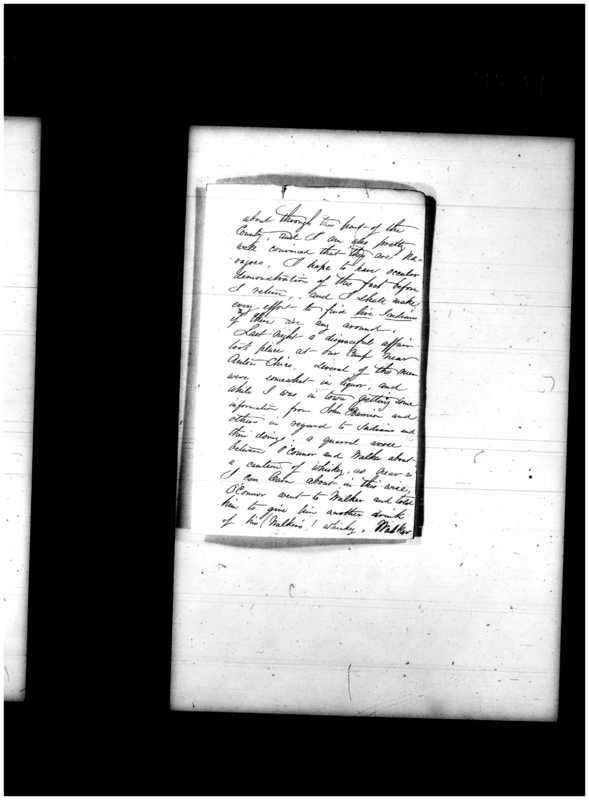 about through this part of the
County, and I am also pretty
well convinced that they are Na-
vajoes. I hope to have occular
demonstration of this fact before
I return, and I shall make
every effort to find live Indians
if there are any around.
Last night a disgraceful affair
took place at our Camp near
Anton Chico. Several of the men
were somewhat in liquor, and
while I was in town getting some
information from John and
others in regard to Indians and
their doings, a quarrel arose
between O'Connor and Walker about
a canteen of whisky, as near as
I can learn about in this wise,
O'Connor went to Walker and told
him to give him another drink
of his (Walkers) whisky. Walker